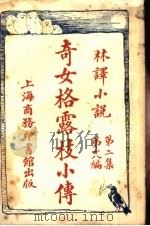 林譯小說
第二集
第十八編
奇女格露枝小傳
上海商務印書館出版